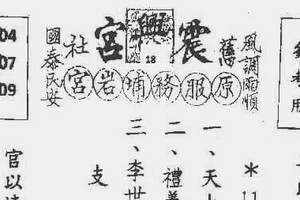 風調雨順
舊 震興宮 社
國泰民安
18
原服務埔岩宮
04
07
09
*11
一、天上
二、禮義
三、李世
支
官以